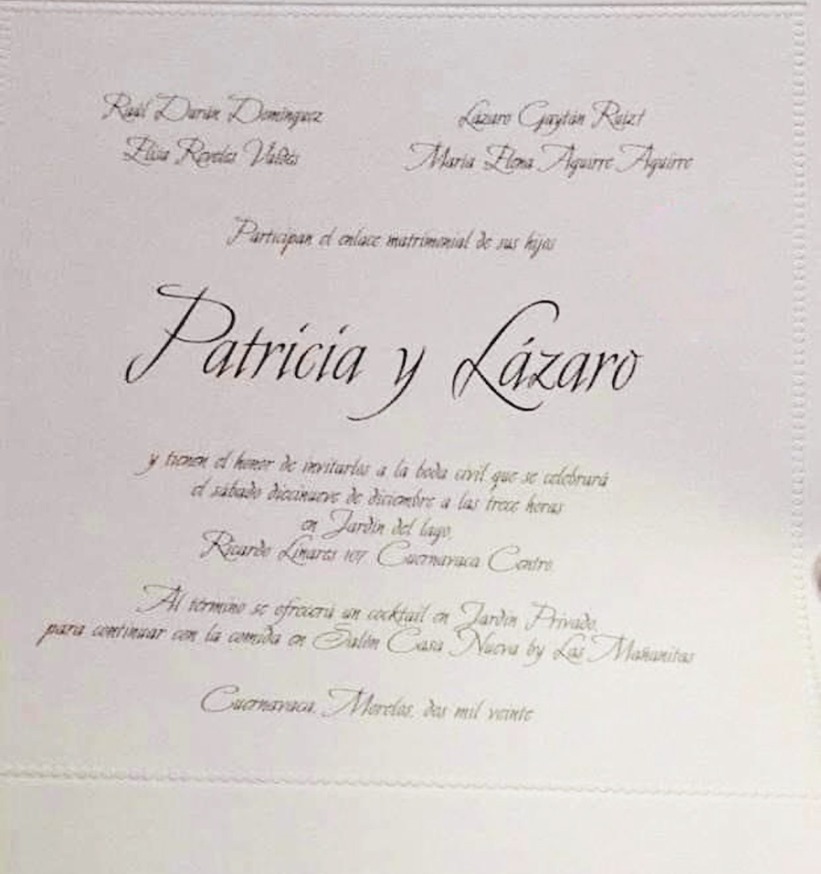 Raúl Durán Domínguez
Elisa Reveles Valdés
Lázaro Gaytán Ruiz†
María Elena Aguirre Aguirre
Participan el enlace matrimonial de sus hijos
Patricia y Lázaro
y tienen el honor de invitarlos a la boda civil que se celebrará
el sábado diecinueve de diciembre a las trece horas
en Jardín del lago,
Ricardo Linares 107 Cuernavaca Centro.
Al término se ofrecerá un cocktail en Jardín Privado,
para continuar con la comida en Salón Casa Nueva by Las Mañanitas
Cuernavaca, Morelos, dos mil veinte